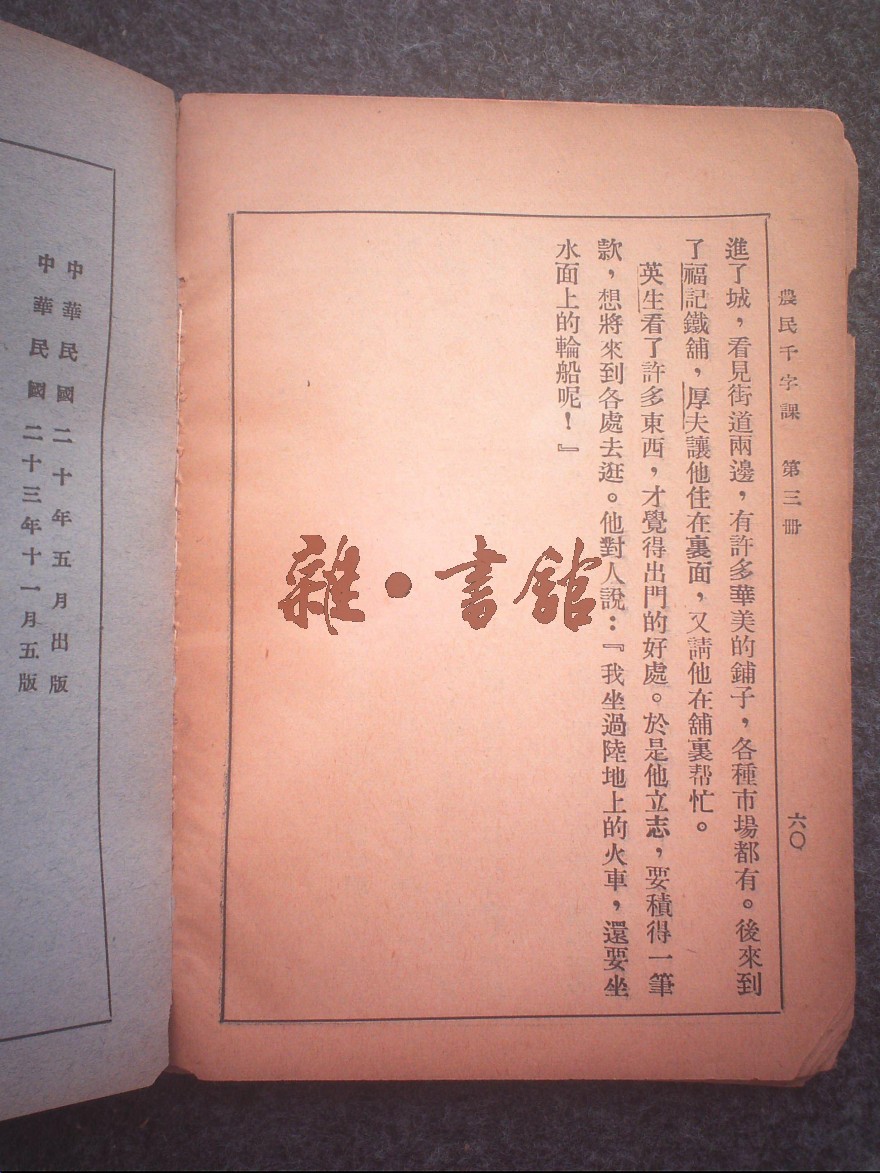 農民千字課　第三冊
六〇
進了城，看見街道兩邊，有許多華美的鋪子，各種市場都有。後來到
了福記鐵舖，厚夫讓他住在裏面，又請他在舖裏帮忙。
英生看了許多東西，才覺得出門的好處。於是他立志，要積得一筆
款，想將來到各處去逛。他對人說：『我坐過陸地上的火車，還要坐
水面上的輪船呢！』
雜・書館
中華民國二十年五月出版
中華民國二十三年十一月五版